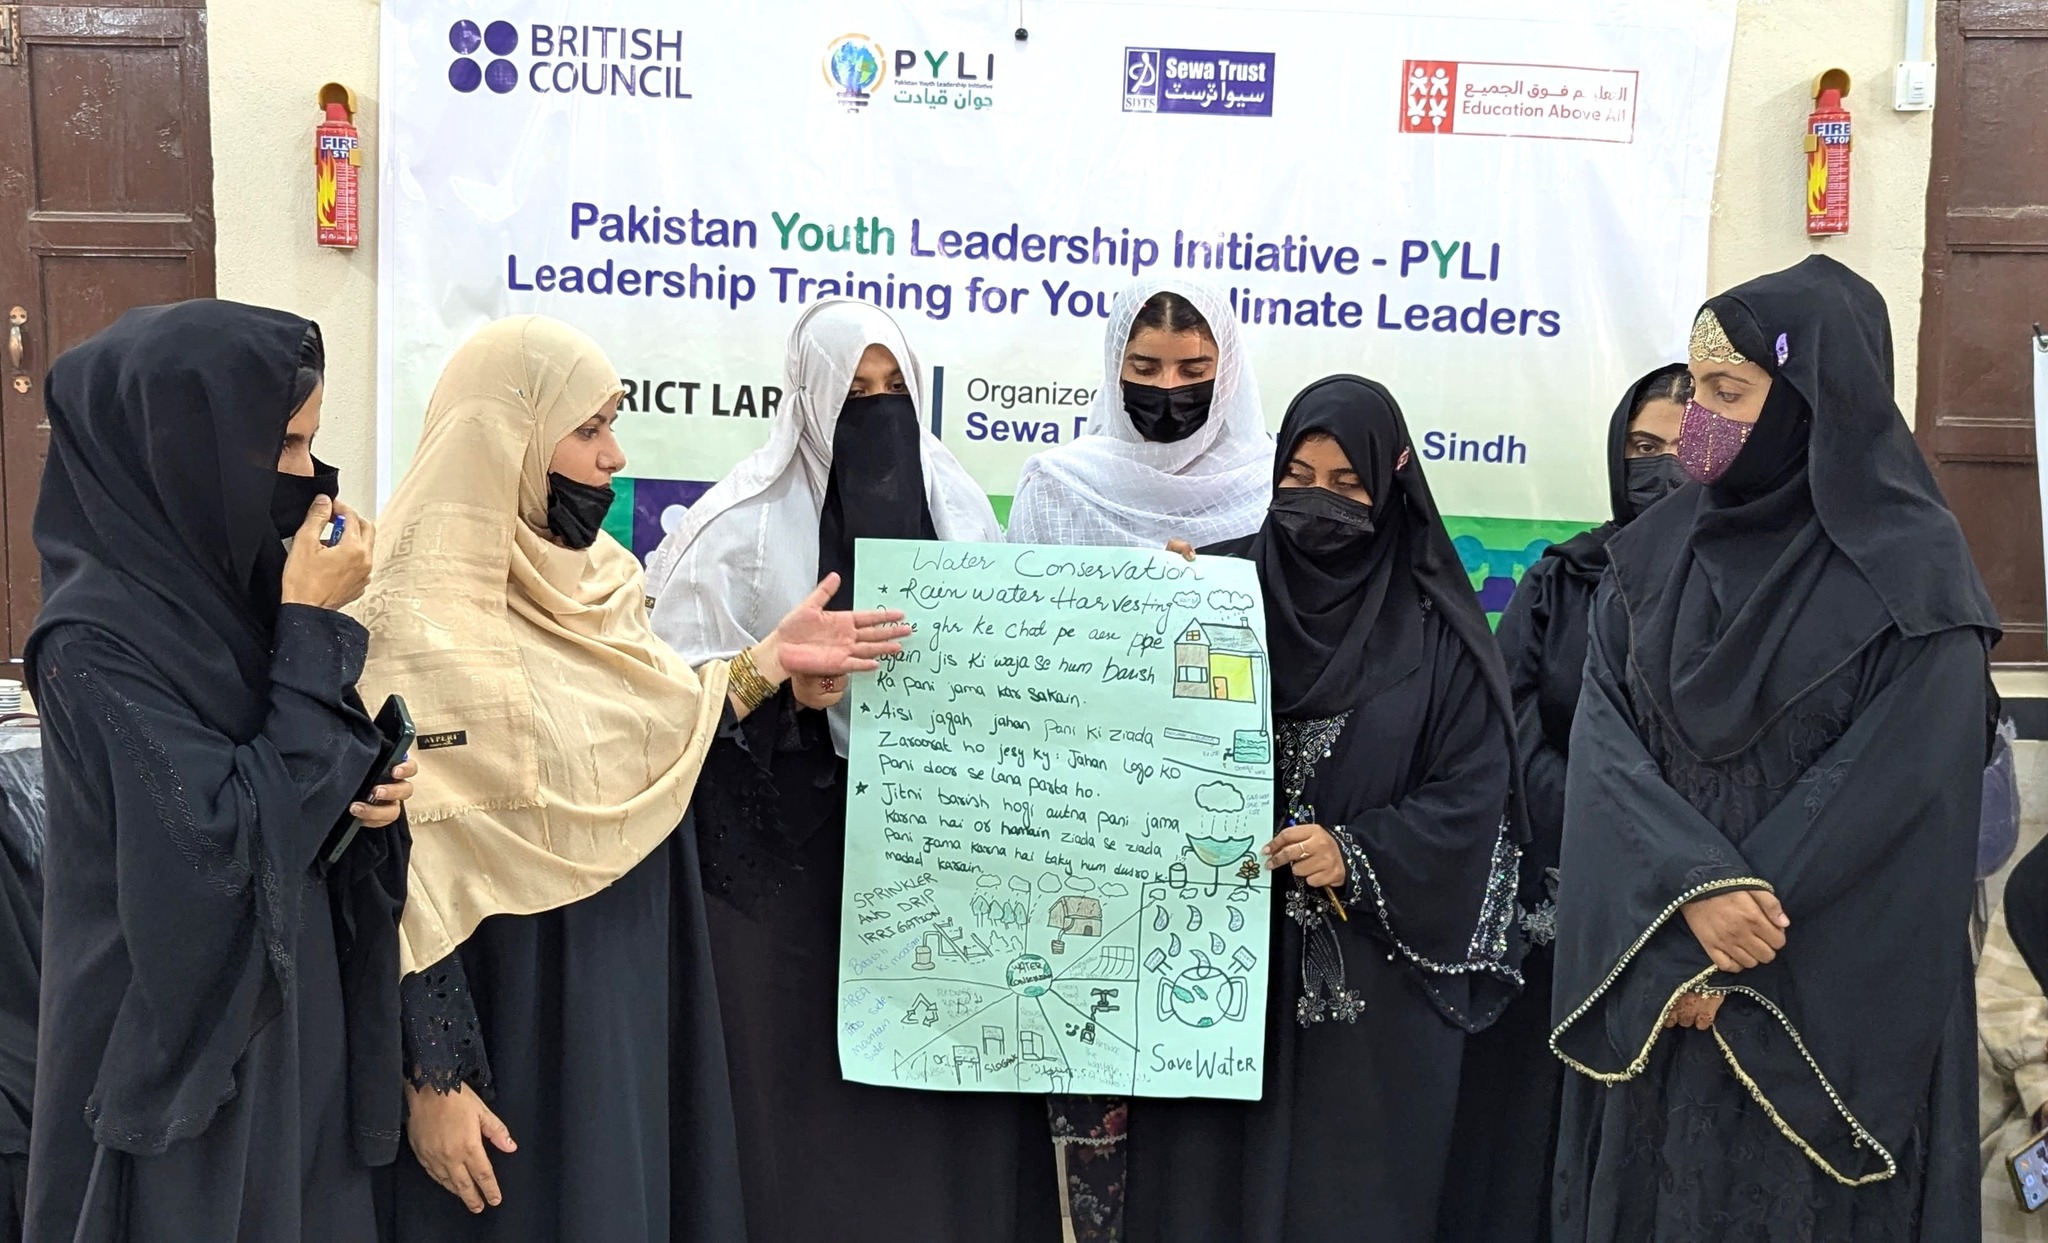 BRITISH
COUNCIL
PYLI
Pakistan Youth Leadership Initiative
جوان قیادت
Sewa Trust
سیوا ٹرسٹ
SDTS
التعليم فوق الجميع
Education Above All
FIRE
STOP
FIRE
STOP
Pakistan Youth Leadership Initiative - PYLI
Leadership Training for You limate Leaders
RICT LAR
Organized
Sewa D Sindh
Water Conservation
* Rain water Harvesting
ghr ke chat pe aese pipe
lagain jis ki waja se hum barish
ka pani jama kar sakain.
* Aisi jagah jahan pani ki ziada
Zaroorat ho jesy ky: Jahan logo ko
pani door se lana parta ho.
* Jitni barish hogi autna pani jama
karna hai or hamain ziada se ziada
pani jama karna hai taky hum dusro k
madad karain.
SPRINKLER
AND DRIP
IRRIGATION
Barish
ki
AREA
side
mountain
side
WATER
SLOGAN
Save Water